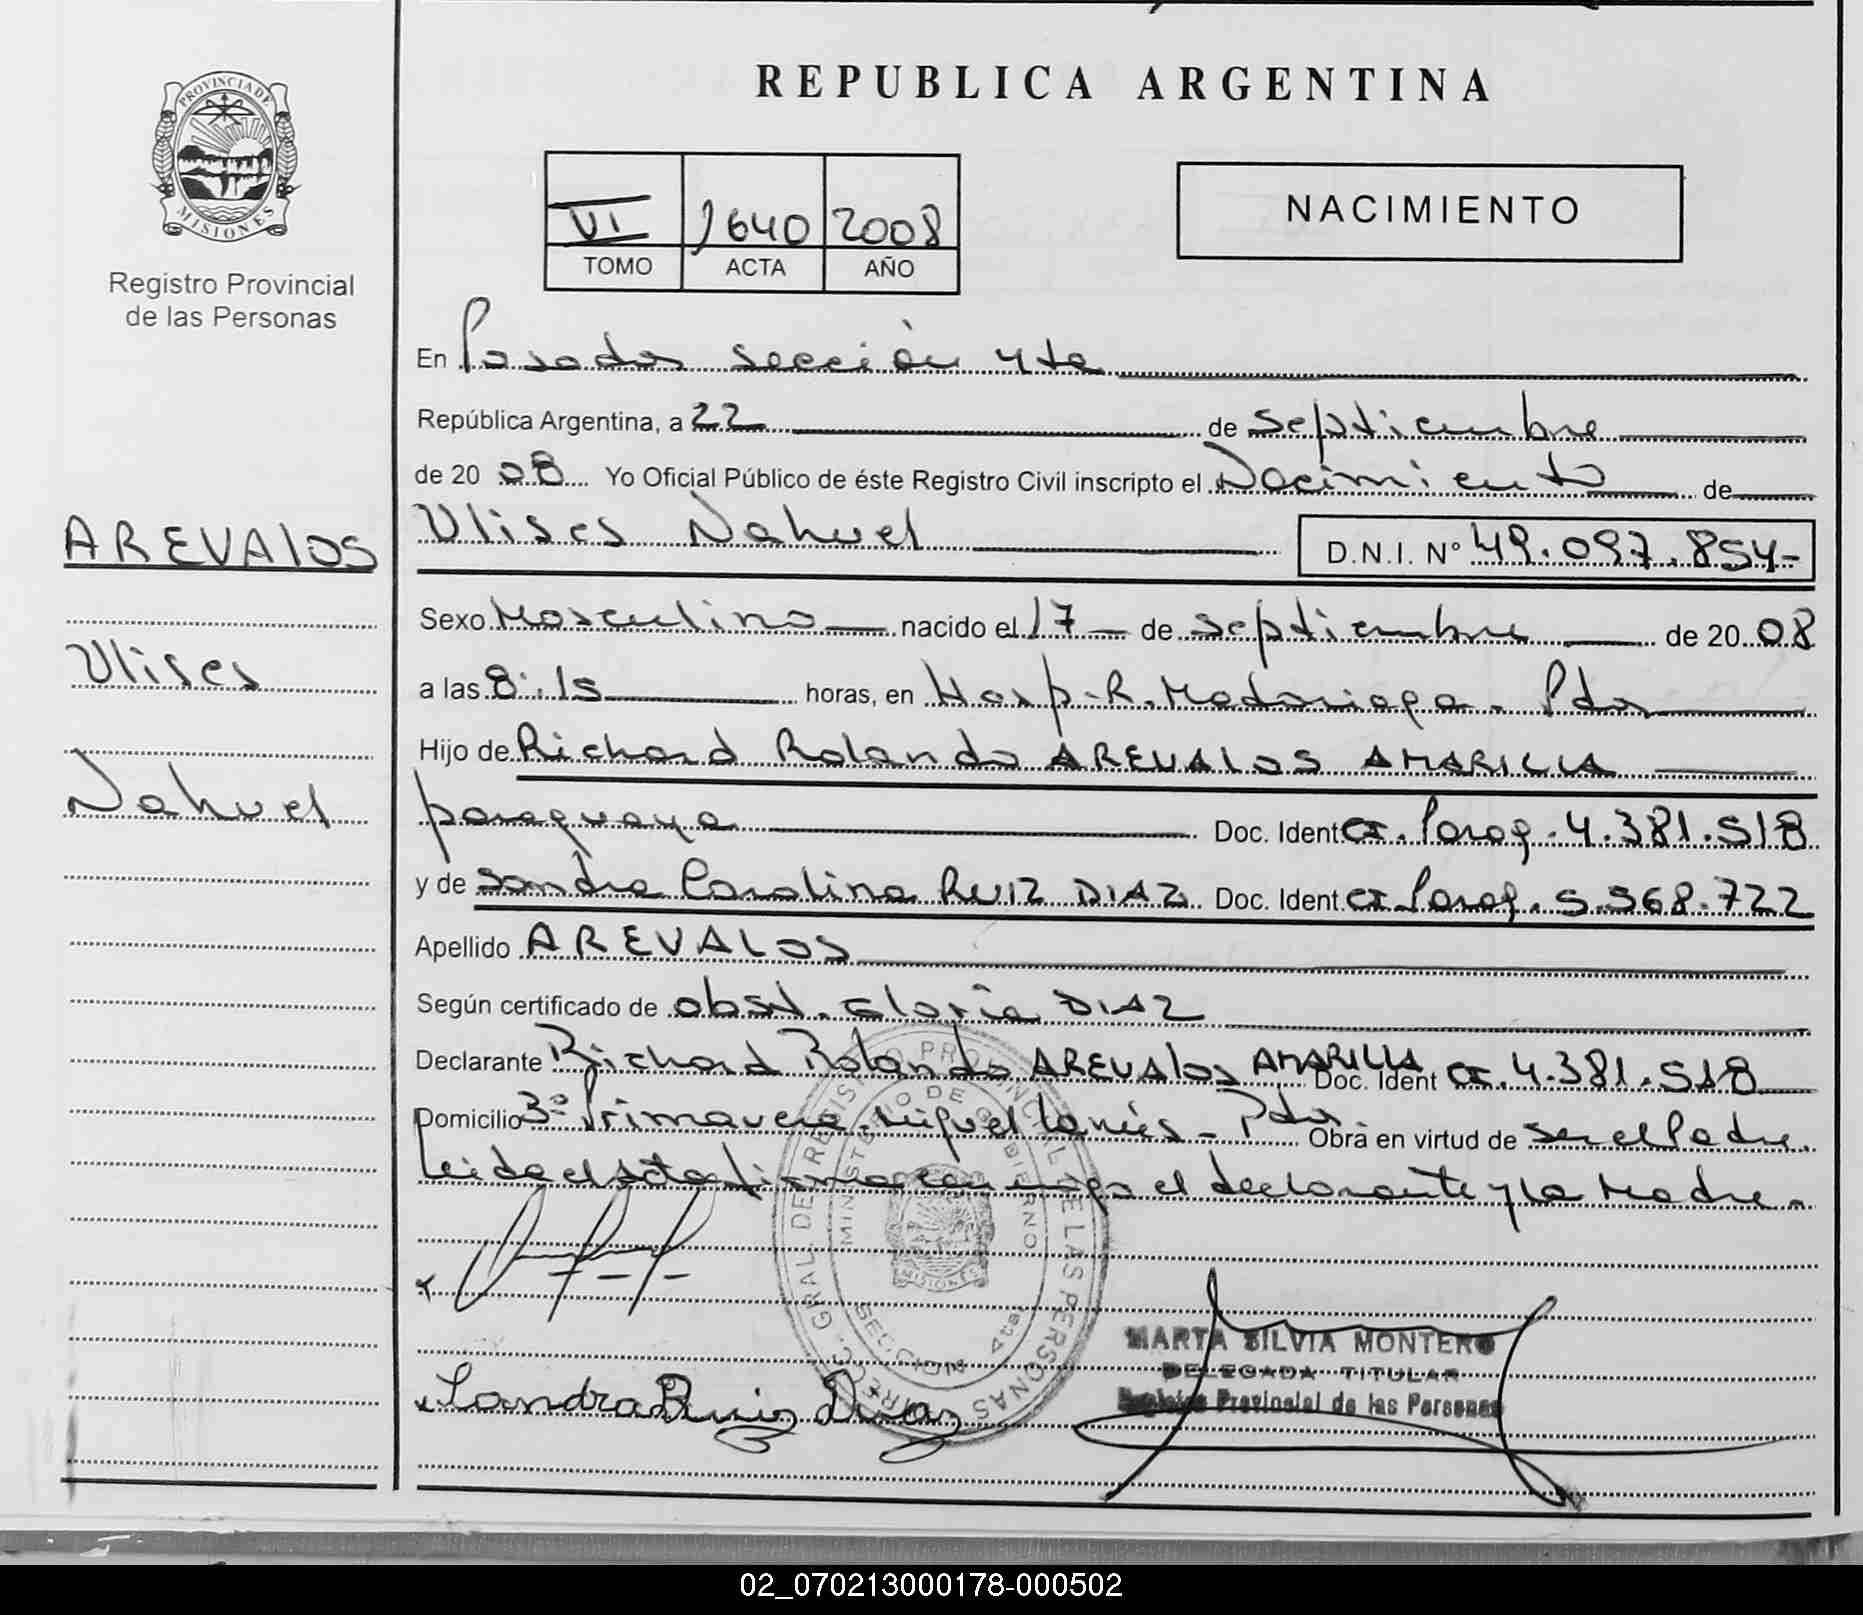 PROVINCIA DE
MISIONES
Registro Provincial
de las Personas
AREVALOS
Ulises
Nahuel
REPUBLICA ARGENTINA
VI 1640 2008
TOMO ACTA AÑO
NACIMIENTO
En Posadas sección 4ta
República Argentina, a 22 de septiembre
de 20 08 Yo Oficial Público de éste Registro Civil inscripto el Nacimiento de
Ulises Nahuel D.N.I. N° 49.097.854-
Sexo Masculino nacido el 17 de septiembre de 20 08
a las 8:15 horas, en Hosp. R. Madariaga. Pdas
Hijo de Richard Rolando AREVALOS AMARILLA
paraguaya Doc. Ident CI. Parag. 4.381.518
y de Sandra Carolina RUIZ DIAZ Doc. Ident. CI Parag. 5.568.722
Apellido AREVALOS
Según certificado de obst. Gloria DIAZ
Declarante Richard Rolando AREVALOS AMARILLA Doc. Ident CI. 4.381.518
Domicilio 3° Primavera. Miguel Lanús - Pdas Obra en virtud de ser el Padre.
Leida el acta firma conmigo el declarante y la Madre.-
DIRECC. GRAL. DE REGISTRO PROVINCIAL DE LAS PERSONAS
MINISTERIO DE GOBIERNO
MISIONES
SECCION 4ta.
x
x Sandra Ruiz Diaz
MARTA SILVIA MONTERO
DELEGADA TITULAR
Registro Provincial de las Personas
02_070213000178-000502